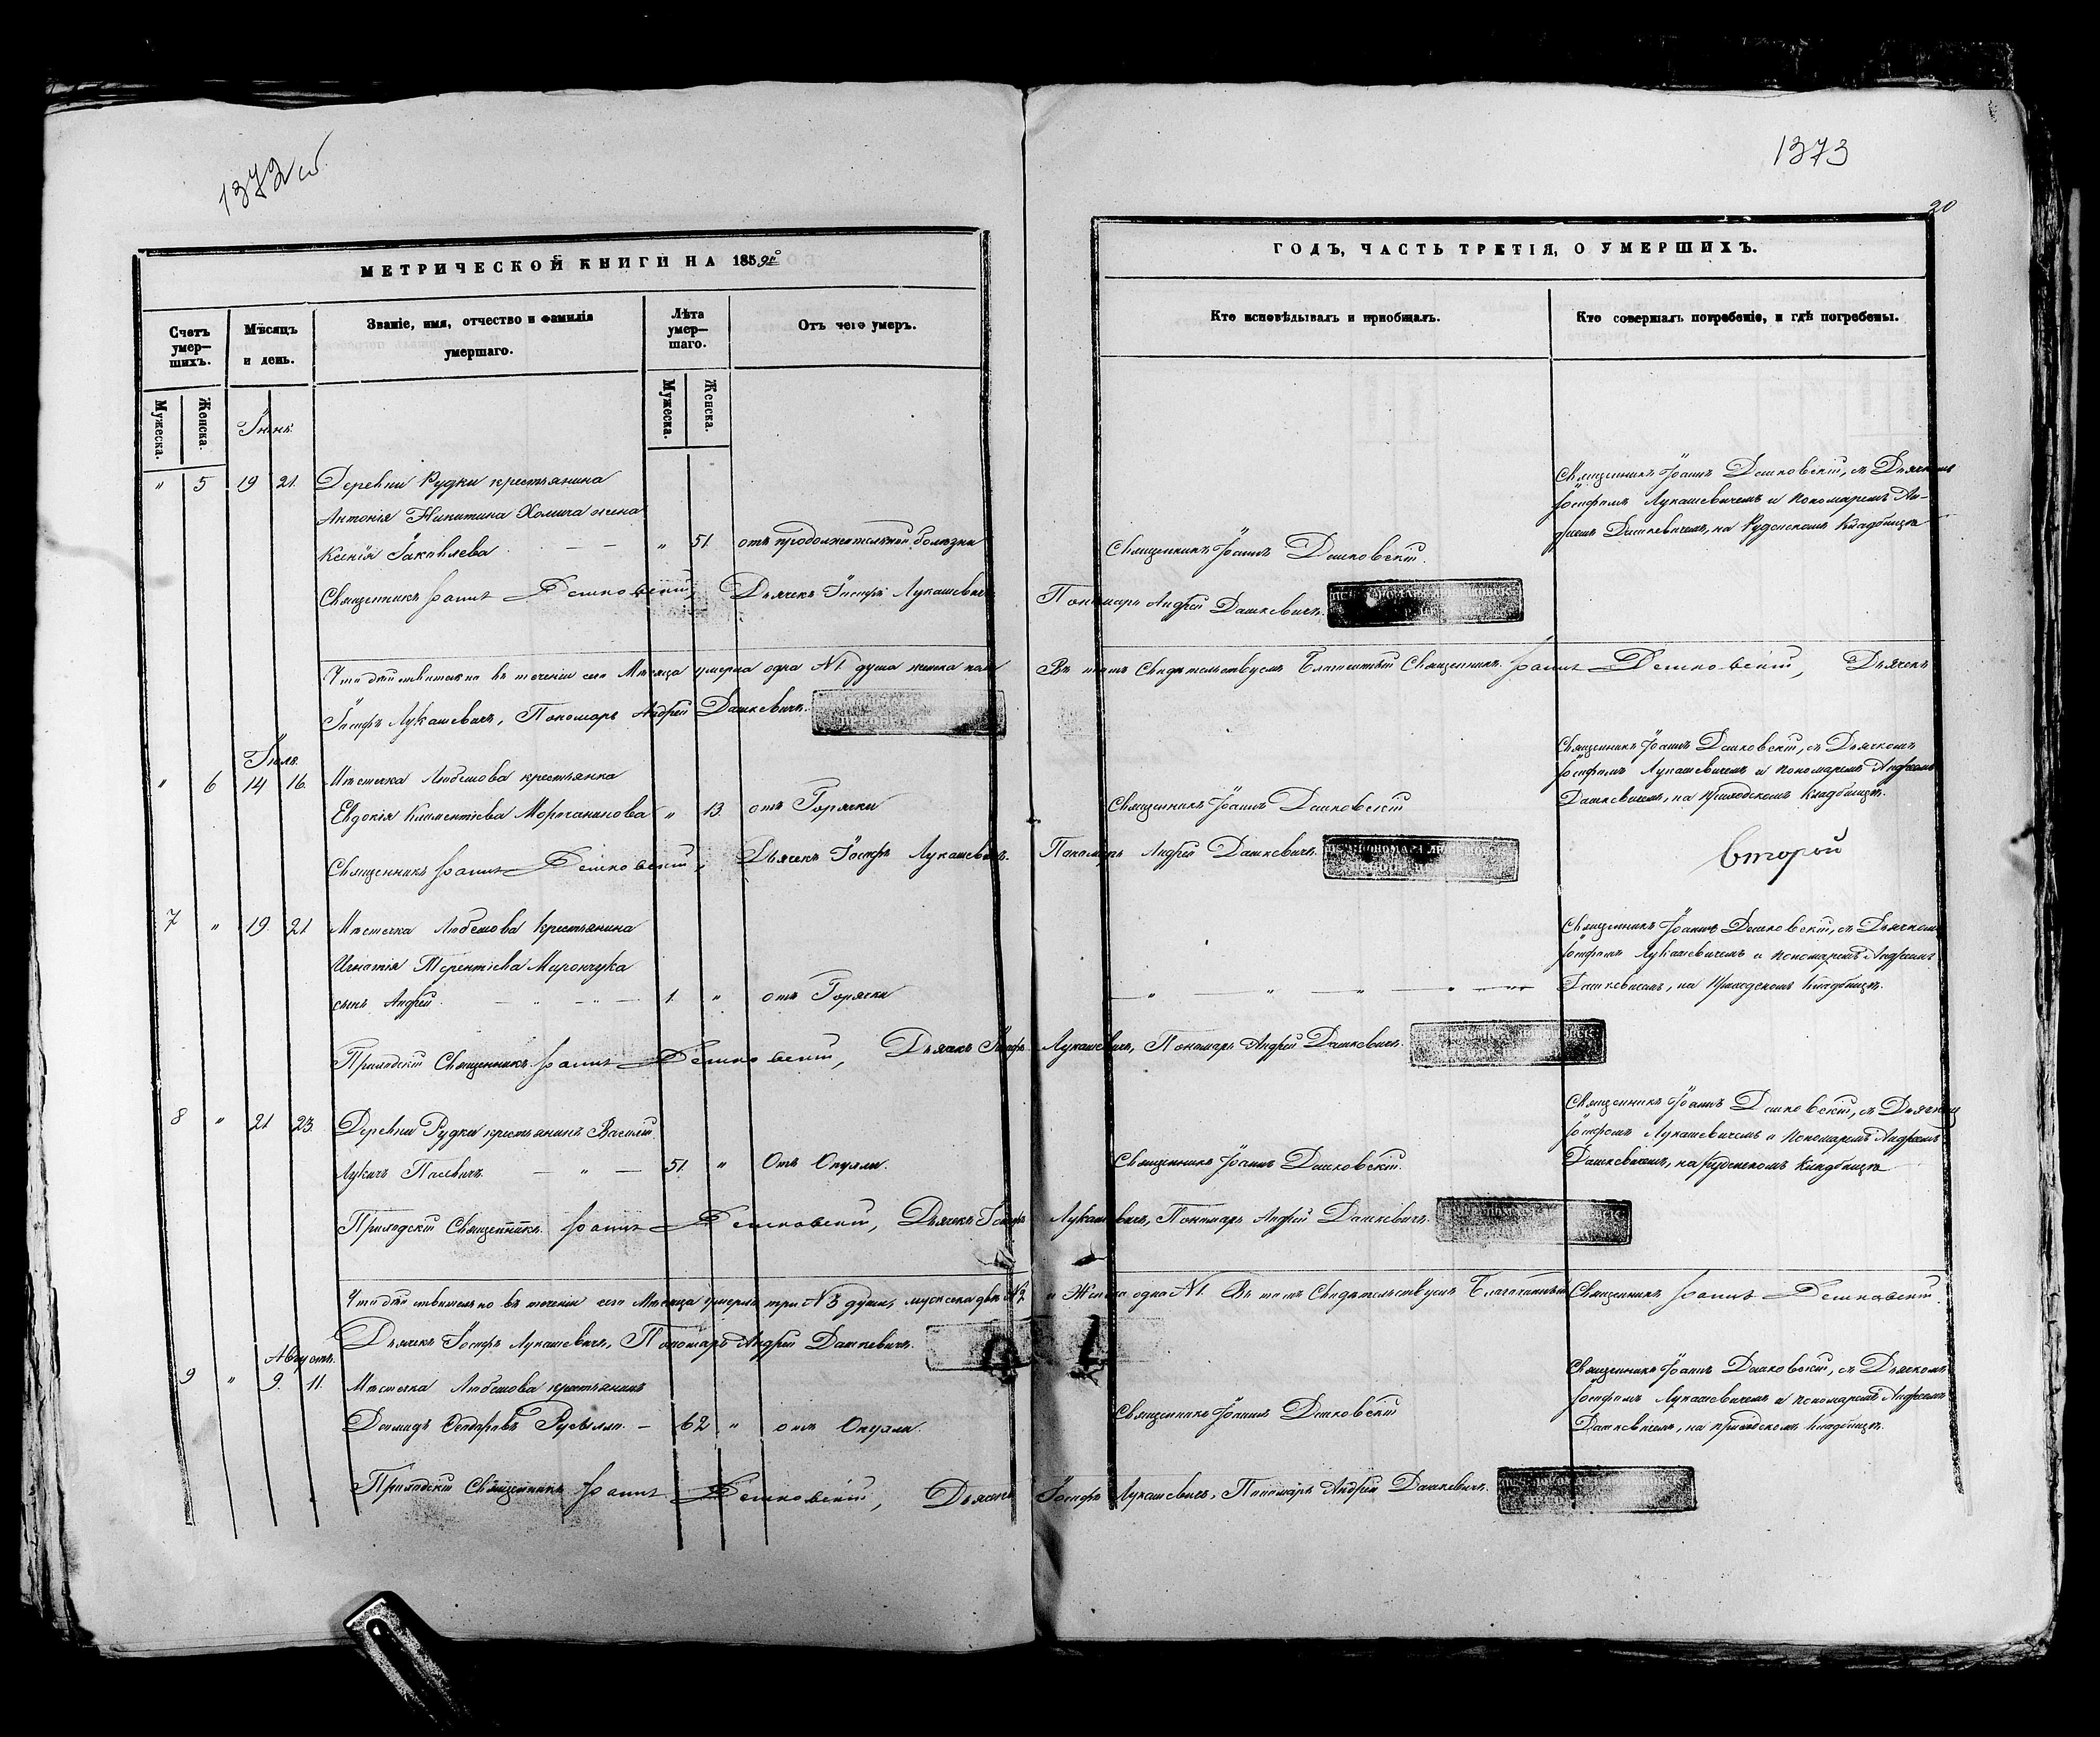 1372 об.
1373
20
МЕТРИЧЕСКОЙ КНИГИ НА 1859й
ГОДЪ, ЧАСТЬ ТРЕТІЯ, О УМЕРШИХЪ.
Счетъ умер—шихъ.
Мѣсяцъ и день.
Званіе, имя, отчество и фамилія умершаго.
Лѣта умер—шаго.
Отъ чего умеръ.
Кто исповѣдывалъ и пріобщалъ.
Кто совершалъ погребеніе, и гдѣ погребены.
Мужеска.
Женска.
Мужеска.
Женска.
Іюнь
" 5 19 21. Деревни Рудки крестьянина
Антонія Никитина Хомича жена
Ксенія Іаковлева — — " 51. отъ продолжительной болезни
Священникъ Іоаннъ Дашковскій
Священникъ Іоаннъ Дашковскій, съ Дьячкомъ
Іосифомъ Лукашевичемъ и пономаремъ Ан-
дреемъ Дашкевичемъ, на Рудскомъ кладбищѣ
Священникъ Іоаннъ Дашковскій, Дьячекъ Іосифъ Лукашевичъ Пономарь Андрей Дашкевичъ.
Что дѣйствительно въ теченіи сего Мѣсяца умерла одна №1 душа женска пола Въ томъ свидѣтельствуемъ Благочинный Священникъ Іоаннъ Дашковскій, Дьячекъ
Іосифъ Лукашевичъ, Пономарь Андрей Дашкевичъ.
Іюль
" 6 14 16. Мѣстечка Любешова крестьянка
Евдокія Климентіева " 13. отъ Горячки
Священникъ Іоаннъ Дашковскій
Священникъ Іоаннъ Дашковскій, съ Дьячкомъ
Іосифомъ Лукашевичемъ и пономаремъ Андреемъ
Дашкевичемъ, на приходскомъ кладбищѣ.
Священникъ Іоаннъ Дашковскій, Дьячекъ Іосифъ Лукашевичъ. Пономарь Андрей Дашкевичъ.
второй
7 " 19. 21 Мѣстечка Любешова крестьянина
Игнатія Терентіева Мирончука
сынъ Андрей. — " — 1. " отъ Горячки
— " — " — " — " —
Священникъ Іоаннъ Дашковскій, съ Дьячкомъ
Іосифомъ Лукашевичемъ и пономаремъ Андреемъ
Дашкевичемъ, на приходскомъ кладбищѣ.
Приходскій Священникъ Іоаннъ Дашковскій, Дьячекъ Іосифъ Лукашевичъ, Пономарь Андрей Дашкевичъ.
8 " 21 23. Деревни Рудки крестьянинъ Василій
Лукичъ Пасевичъ. — " — 51. " Отъ Опухли.
Священникъ Іоаннъ Дашковскій.
Священникъ Іоаннъ Дашковскій, съ Дьячкомъ
Іосифомъ Лукашевичемъ и пономаремъ Андреемъ
Дашкевичемъ, на Рудскомъ кладбищѣ
Приходскій Священникъ Іоаннъ Дашковскій, Дьячекъ Іосифъ Лукашевичъ, Пономарь Андрей Дашкевичъ.
Что дѣйствительно въ теченіи сего Мѣсяца умерли три №3 души, мужеска двѣ №2 и Женска одна №1. Въ томъ свидѣтельствуемъ Благочинный Священникъ Іоаннъ Дашковскій.
Дьячекъ Іосифъ Лукашевичъ, Пономарь Андрей Дашкевичъ.
Августъ.
9 " 9. 11. Мѣстечка Любешова крестьянинъ
62 " отъ Опухли.
Священникъ Іоаннъ Дашковскій
Священникъ Іоаннъ Дашковскій, съ Дьячкомъ
Іосифомъ Лукашевичемъ и пономаремъ Андреемъ
Дашкевичемъ, на приходскомъ кладбищѣ.
Приходскій Священникъ Іоаннъ Дашковскій, Дьячекъ Іосифъ Лукашевичъ, Пономарь Андрей Дашкевичъ.